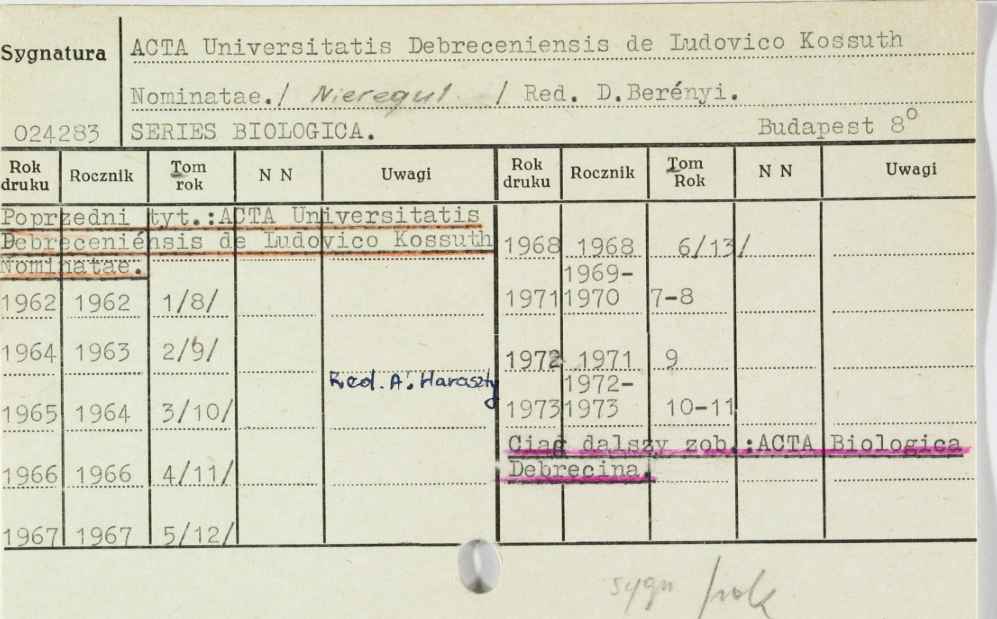 Sygnatura
ACTA Universitatis Debreceniensis de Ludovico Kossuth
Nominatae./ Nieregul / Red. D.Berényi.
024283 SERIES BIOLOGICA. Budapest 8°
Rok druku Rocznik Tom rok N N Uwagi Rok druku Rocznik Tom Rok N N Uwagi
Poprzedni tyt.:ACTA Universitatis
Debreceniénsis de Ludovico Kossuth
Nominatae.
1962 1962 1/8/
1964 1963 2/9/
Red. A. Haraszty
1965 1964 3/10/
1966 1966 4/11/
1967 1967 5/12/
1968 1968 6/13/
1969-
1971 1970 7-8
1972 1971 9
1972-
1973 1973 10-11
Ciąg dalszy zob.:ACTA Biologica
Debrecina.
sygn /rok